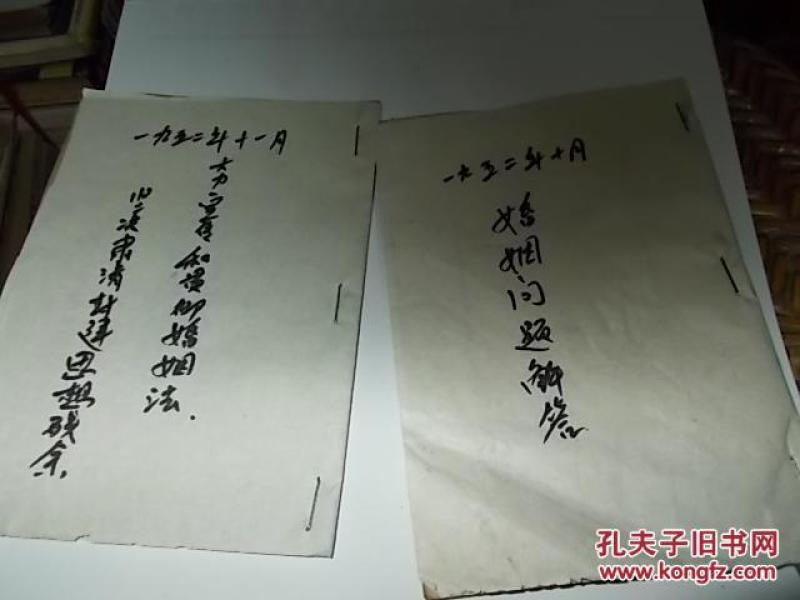 一九五二年十一月
大力宣传和贯彻婚姻法.
坚决肃清封建思想残余.
一九五二年十月
婚姻问题解答
孔夫子旧书网
www.kongfz.com